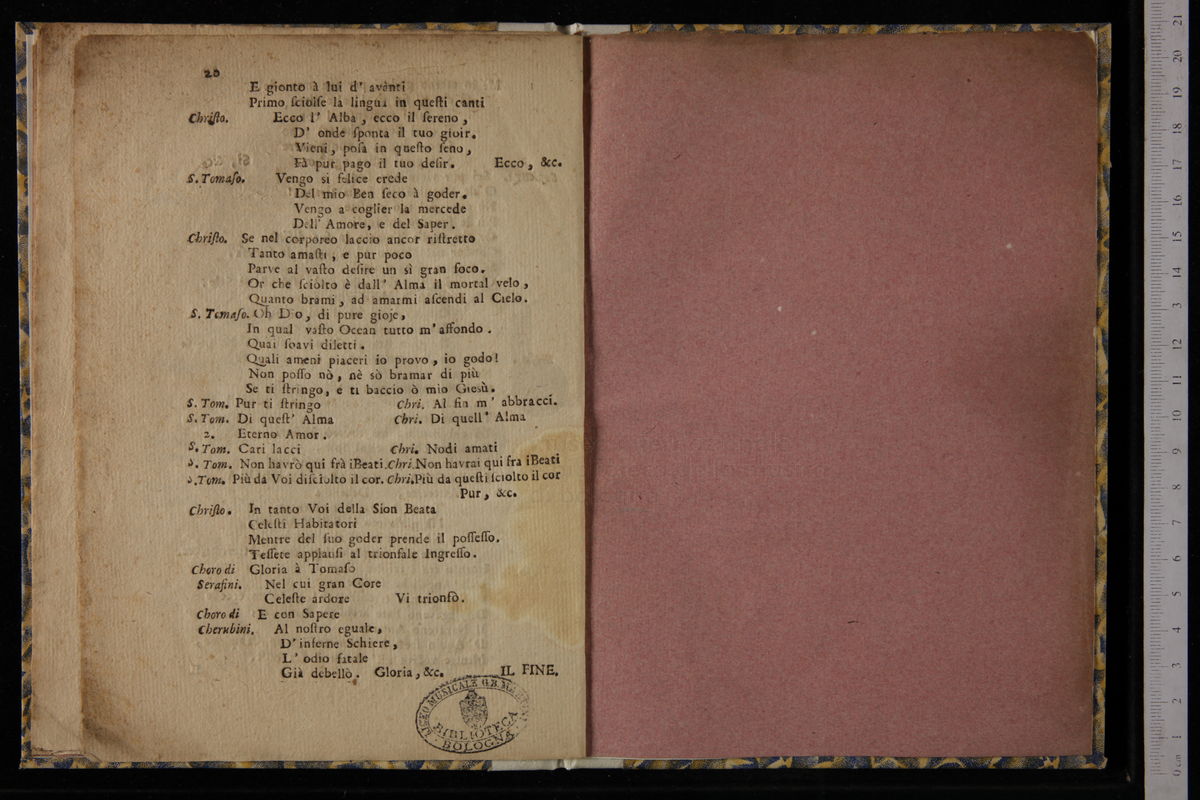 20
E gionto à lui d' avànti
Primo sciolse la lingua in questi canti
Christo. Ecco l' Alba, ecco il sereno,
D' onde sponta il tuo gioir.
Vieni, posa in questo seno,
Fà pur pago il tuo desir. Ecco, &c.
S. Tomaso. Vengo si felice erede
Del mio Ben seco à goder.
Vengo a coglier la mercede
Dell' Amore, e del Saper.
Christo. Se nel corporeo laccio ancor ristretto
Tanto amasti, e pur poco
Parve al vasto desire un sì gran foco.
Or che sciolto è dall' Alma il mortal velo,
Quanto brami, ad amarmi ascendi al Cielo.
S. Tomaso. Oh D o, di pure gioje,
In qual vasto Ocean tutto m' affondo.
Quai soavi diletti.
Quali ameni piaceri io provo, io godo!
Non posso nò, nè sò bramar di più
Se ti stringo, e ti baccio ò mio Giesù.
S. Tom. Pur ti stringo Chri. Al fin m' abbracci.
S. Tom. Di quest' Alma Chri. Di quell' Alma
2. Eterno Amor.
S. Tom. Cari lacci Chri. Nodi amati
S. Tom. Non havrò qui frà i Beati. Chri. Non havrai qui fra i Beati
S. Tom. Più da Voi disciolto il cor. Chri. Più da questi sciolto il cor
Pur, &c.
Christo. In tanto Voi della Sion Beata
Celesti Habitatori
Mentre del suo goder prende il possesso.
Tessete applausi al trionfale Ingresso.
Choro di Gloria à Tomaso
Serafini. Nel cui gran Core
Celeste ardore Vi trionfò.
Choro di E con Sapere
Cherubini. Al nostro eguale,
D' inferne Schiere,
L' odio fatale
Già debellò. Gloria, &c. IL FINE.
LICEO MUSICALE G.B. MARTINI
BIBLIOTECA
BOLOGNA
0 cm 1 2 3 4 5 6 7 8 9 10 11 12 13 14 15 16 17 18 19 20 21